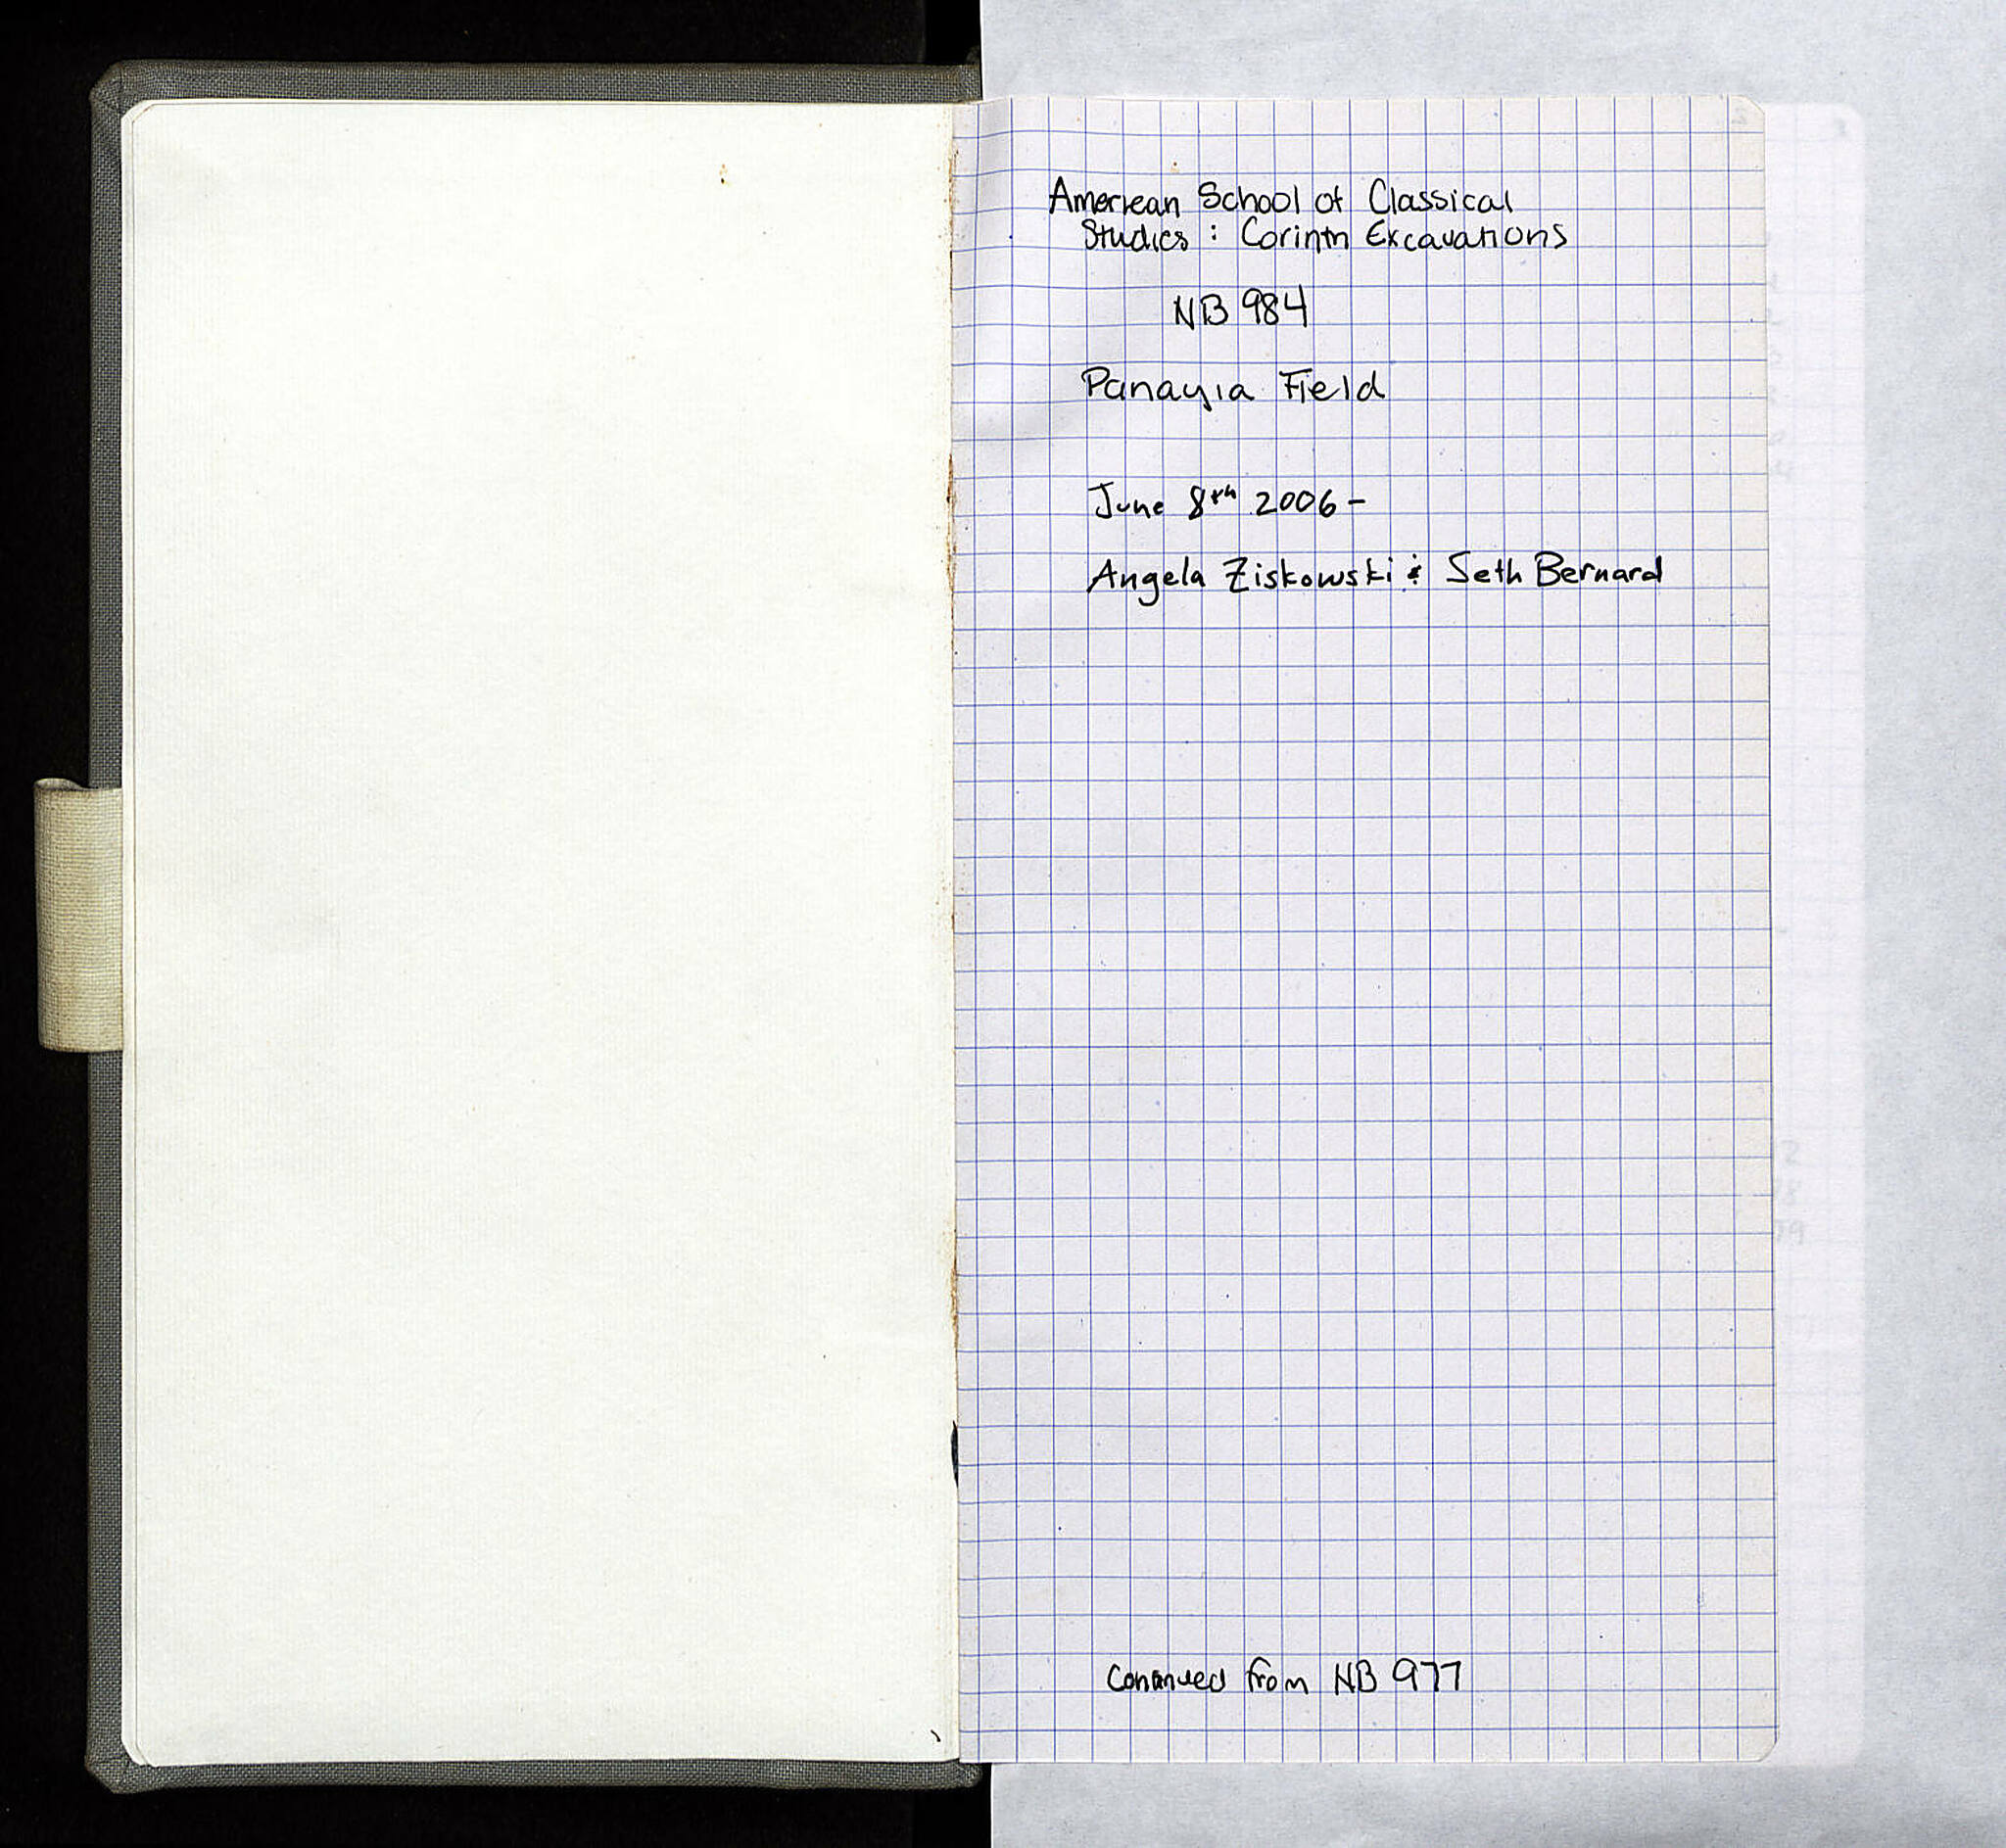 American School of Classical
Studies : Corinth Excavations
NB 984
Panayia Field
June 8th 2006 -
Angela Ziskowski & Seth Bernard
Continued from NB 977